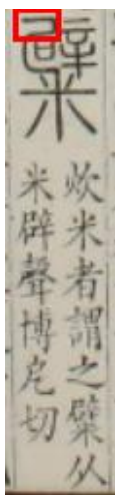 糪
炊米者謂之糪从
米辟聲博戹切